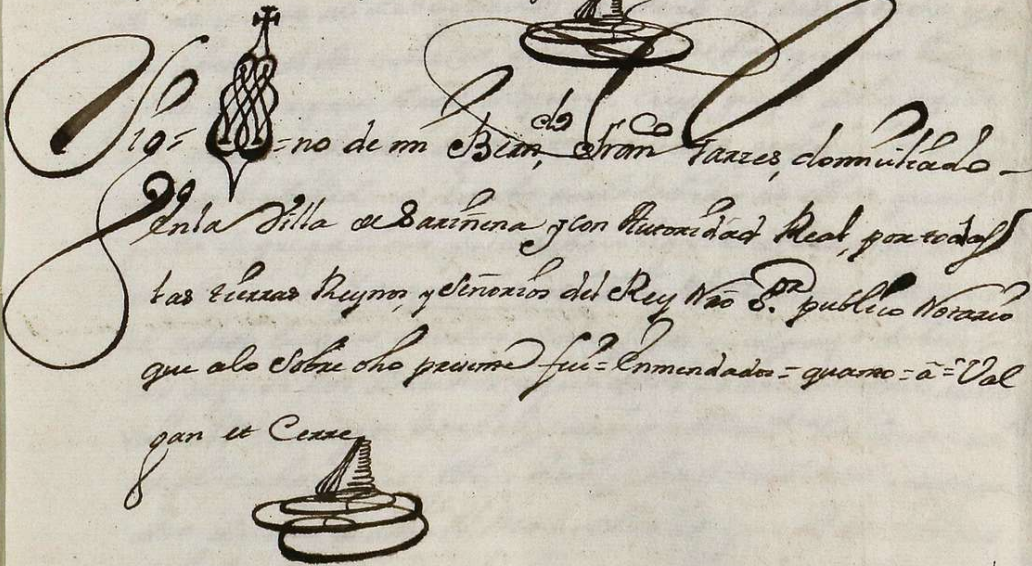 Sig= =no de mi Berndo Franco Tarrez, domiciliado
en la Villa de Sariñena y con Autoridad Real, por todas
las tierras Reynos, y Señorios del Rey Nro Sor publico Notario
que a lo Sobre dho presente fui= Enmendados= quatro = a = Val
gan et Cerre